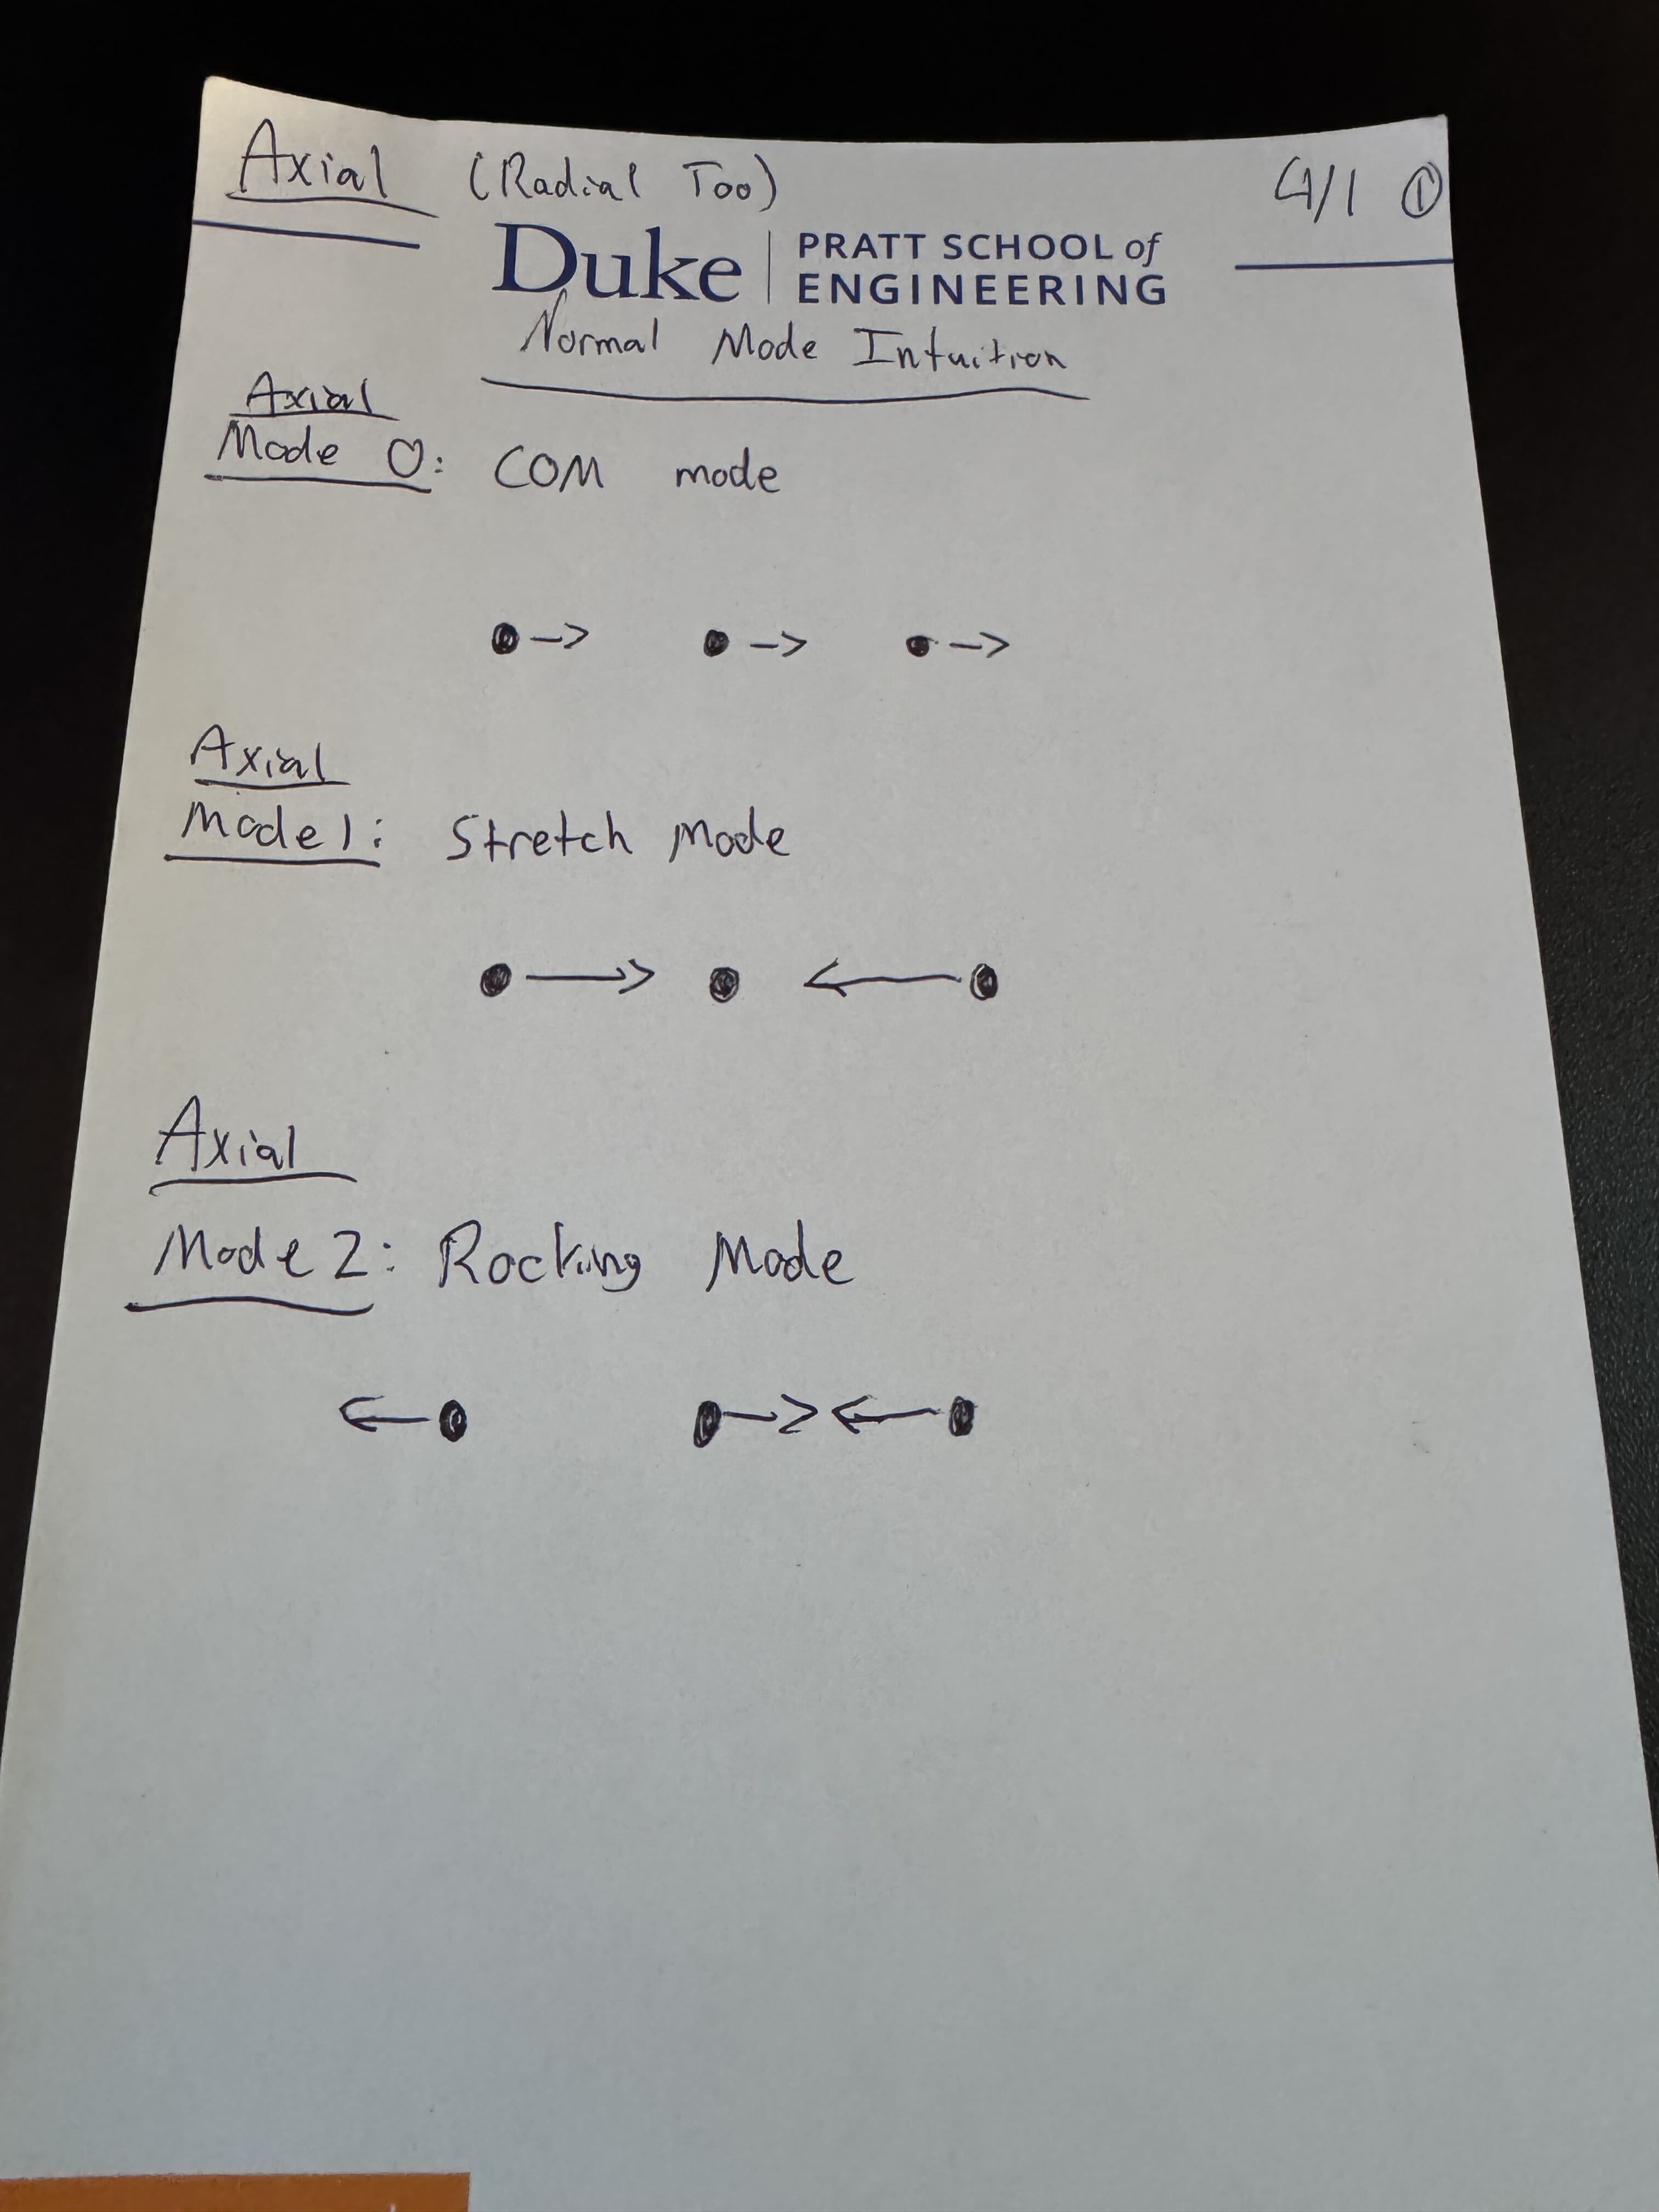 Axial (Radial Too) 4/1 ①
Duke | PRATT SCHOOL of
ENGINEERING
Normal Mode Intuition
Axial
Mode 0: COM mode
Axial
Mode 1: Stretch Mode
Axial
Mode 2: Rocking Mode